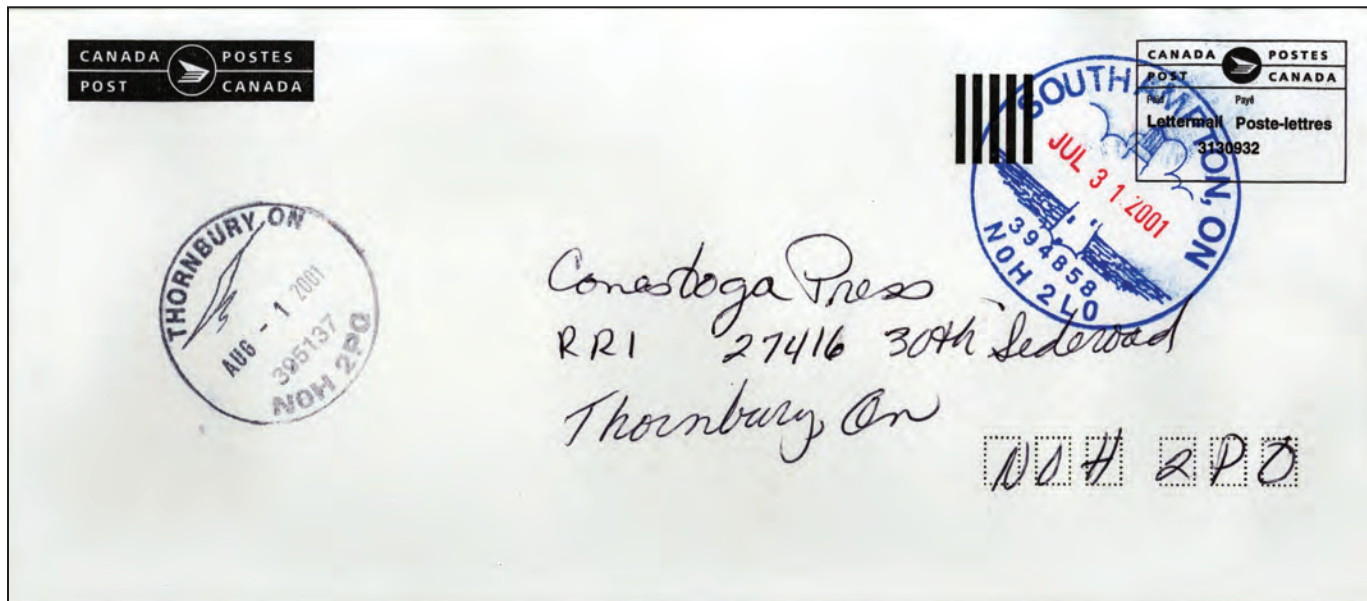 CANADA POSTES
POST CANADA
CANADA POSTES
POST CANADA
Paid Payé
Lettermail Poste-lettres
3130932
SOUTHAMPTON, ON
JUL 31 2001
394858
N0H 2L0
THORNBURY, ON
AUG - 1 2001
395137
N0H 2P0
Conestoga Press
RR1 27416 30th Sideroad
Thornbury, On
N0H 2P0